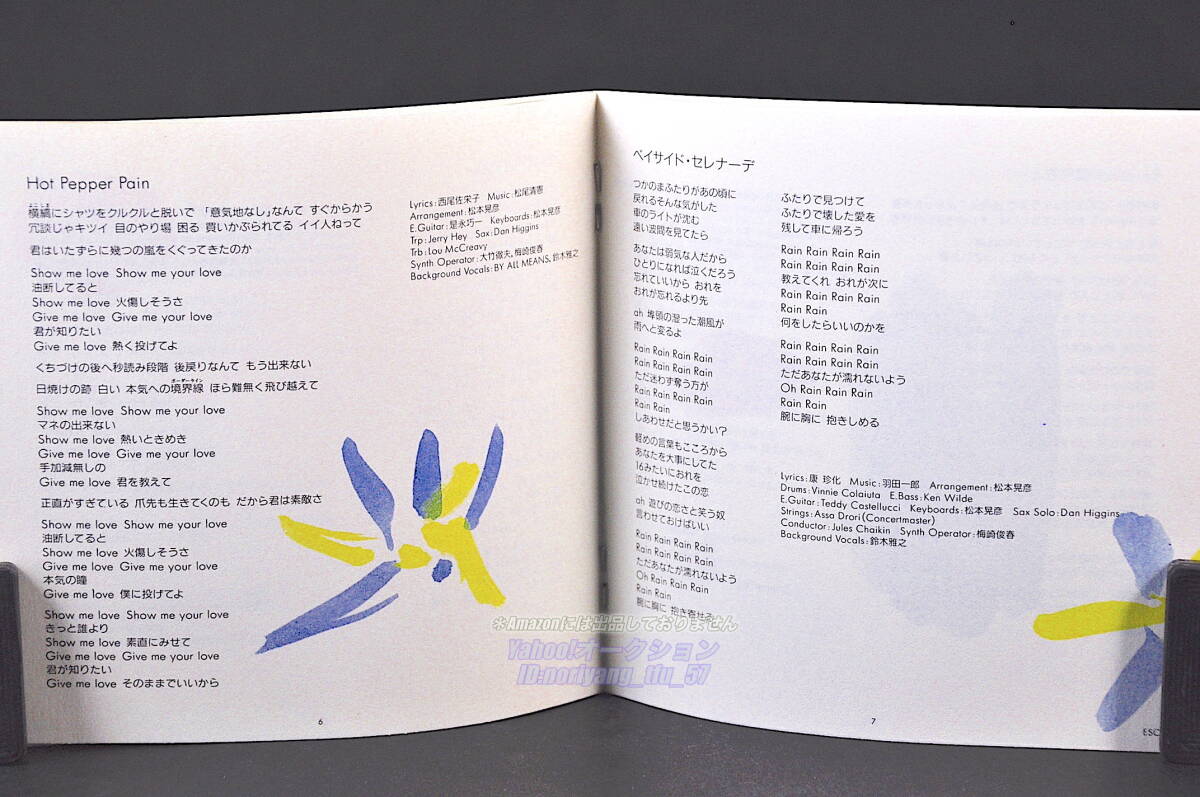 Hot Pepper Pain
横縞にシャツをクルクルと脱いで 「意気地なし」なんて すぐからかう
冗談じゃキツイ 目のやり場 困る 買いかぶられてる イイ人ねって
君はいたずらに幾つの嵐をくぐってきたのか
Show me love Show me your love
油断してると
Show me love 火傷しそうさ
Give me love Give me your love
君が知りたい
Give me love 熱く投げてよ
くちづけの後へ秒読み段階 後戻りなんて もう出来ない
日焼けの跡 白い 本気への境界線 ほら難無く飛び越えて
Show me love Show me your love
マネの出来ない
Show me love 熱いときめき
Give me love Give me your love
手加減無しの
Give me love 君を教えて
正直がすぎている 爪先も生きてくのも だから君は素敵さ
Show me love Show me your love
油断してると
Show me love 火傷しそうさ
Give me love Give me your love
本気の瞳
Give me love 僕に投げてよ
Show me love Show me your love
きっと誰より
Show me love 素直にみせて
Give me love Give me your love
君が知りたい
Give me love そのままでいいから
Lyrics:西尾佐栄子 Music:松尾清憲
Arrangement:松本晃彦
E.Guitar:是永巧一 Keyboards:松本晃彦
Trp:Jerry Hey Sax:Dan Higgins
Trb:Lou McCreavy
Synth Operator:大竹徹夫,梅崎俊春
Background Vocals:BY ALL MEANS,鈴木雅之
6
ベイサイド・セレナーデ
つかのまふたりがあの頃に
戻れるそんな気がした
車のライトが沈む
遠い波間を見てたら
あなたは弱気な人だから
ひとりになれば泣くだろう
忘れていいから おれを
おれが忘れるより先
ah 埠頭の湿った潮風が
雨へと変るよ
Rain Rain Rain Rain
Rain Rain Rain Rain
ただ迷わず奪う方が
Rain Rain Rain Rain
Rain Rain
しあわせだと思うかい?
軽めの言葉もこころから
あなたを大事にしてた
16みたいにおれを
泣かせ続けたこの恋
ah 遊びの恋さと笑う奴
言わせておけばいい
Rain Rain Rain Rain
Rain Rain Rain Rain
ただあなたが濡れないよう
Oh Rain Rain Rain
Rain Rain
腕に胸に 抱き寄せる
ふたりで見つけて
ふたりで壊した愛を
残して車に帰ろう
Rain Rain Rain Rain
Rain Rain Rain Rain
教えてくれ おれが次に
Rain Rain Rain Rain
Rain Rain
何をしたらいいのかを
Rain Rain Rain Rain
Rain Rain Rain Rain
ただあなたが濡れないよう
Oh Rain Rain Rain
Rain Rain
腕に胸に 抱きしめる
Lyrics:康 珍化 Music:羽田一郎 Arrangement:松本晃彦
Drums:Vinnie Colaiuta E.Bass:Ken Wilde
E.Guitar:Teddy Castellucci Keyboards:松本晃彦 Sax Solo:Dan Higgins
Strings:Assa Drori(Concertmaster)
Conductor:Jules Chaikin Synth Operator:梅崎俊春
Background Vocals:鈴木雅之
7
ESC
＊Amazonには出品しておりません
Yahoo!オークション
ID:noriyang_tfu_57